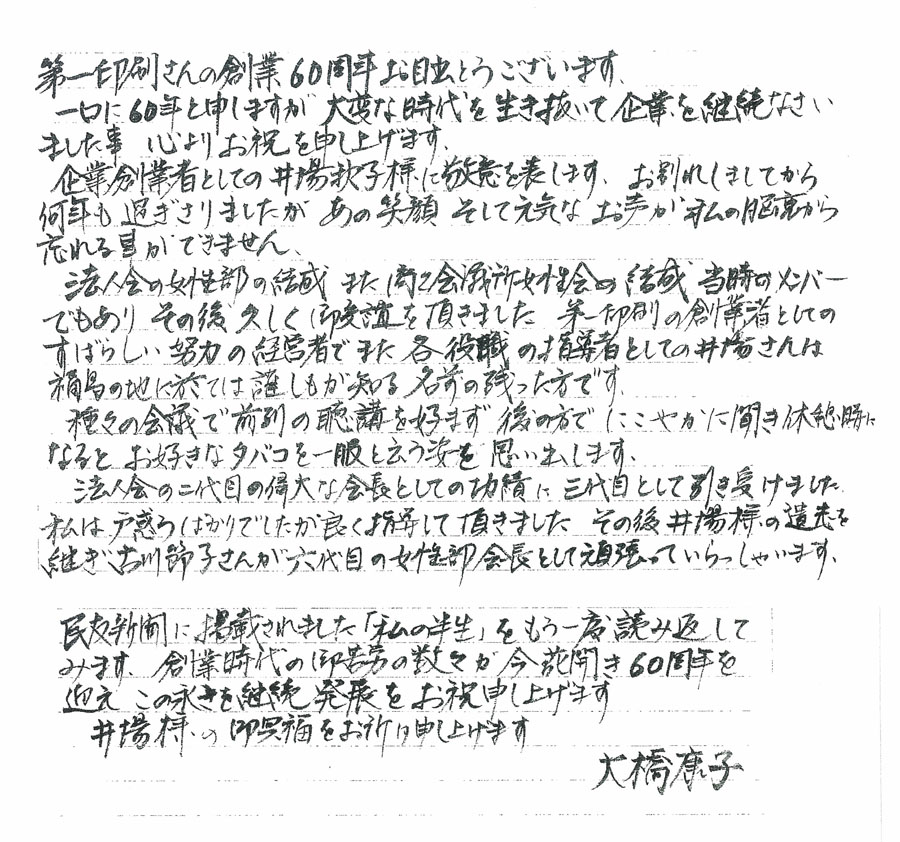 第一印刷さんの創業60周年お目出とうございます、
一口に60年と申しますが 大変な時代を生き抜いて企業を継続なさい
ました事 心よりお祝を申し上げます、
企業創業者としての井場秋子様に敬意を表します、 お別れしましてから
何年も過ぎさりましたが あの笑顔 そして元気な お声が私の脳裏から
忘れる事ができません、
法人会の女性部の結成 また商工会議所女性会の結成 当時のメンバー
でもあり その後久しく御交誼を頂きました 第一印刷の創業者としての
すばらしい努力の経営者でまた各役職の指導者としての井場さんは
福島の地に於ては誰しもが知る名前の残った方です、
種々の会議で前列の聴講を好まず 後の方で にこやかに聞き休憩時に
なると お好きなタバコを一服と云う姿を思い出します、
法人会の二代目の偉大な会長としての功績に三代目として引き受けました
私は戸惑うばかりでしたが良く指導して頂きました その後井場様の遺志を
継ぎ古川節子さんが六代目の女性部会長として頑張っていらっしゃいます、
民友新聞に掲載されました「私の半生」をもう一度読み返して
みます、創業時代の御苦労の数々が今花開き60周年を
迎え この永きを継続 発展をお祝申し上げます
井場様の御冥福をお祈り申し上げます
大橋康子